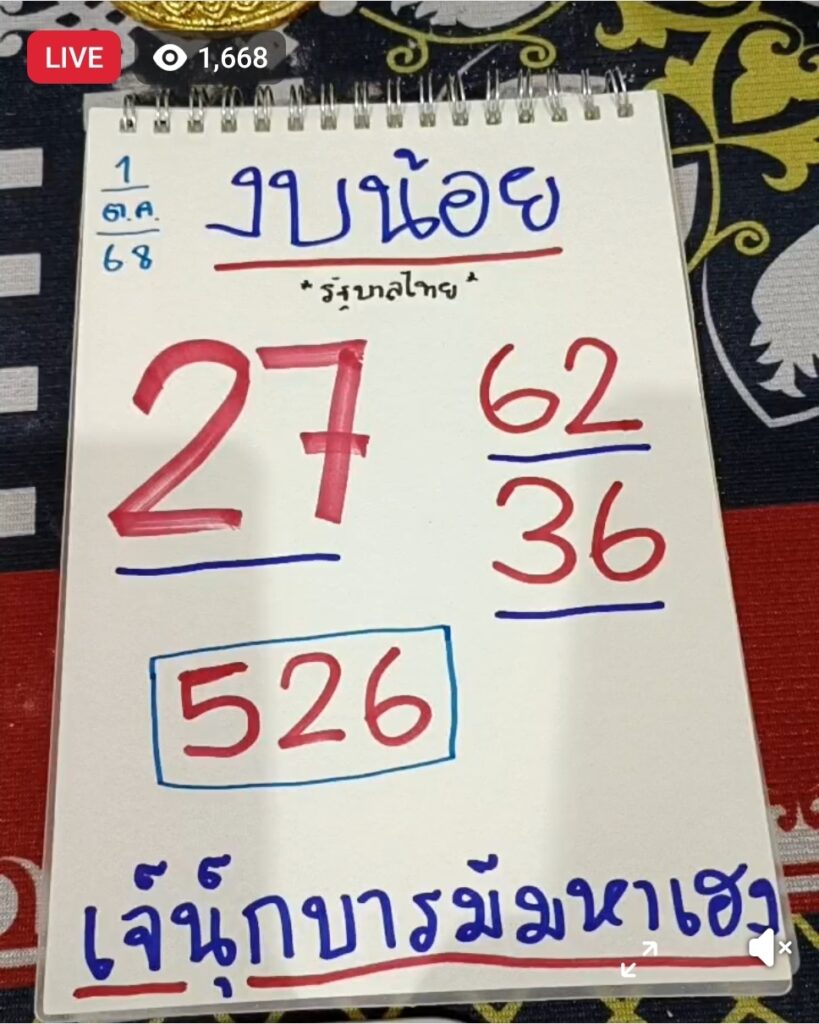 LIVE 1,668
1
ต.ค.
68
งบน้อย
*รัฐบาลไทย*
27
62
36
526
เจ๊นุ๊กบารมีมหาเฮง